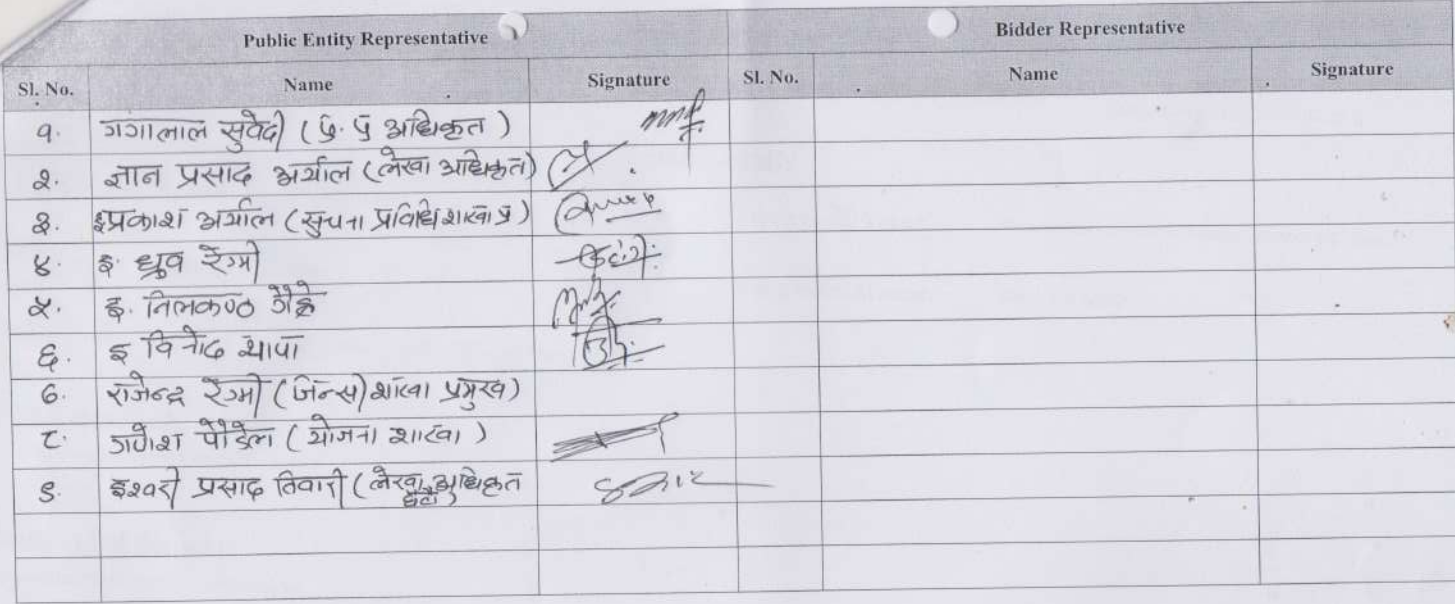 Public Entity Representative Bidder Representative
Sl. No. Name Signature Sl. No. Name Signature
१. गंगालाल सुवेदी (प्र. प्र अधिकृत)
२. ज्ञान प्रसाद अर्याल (लेखा अधिकृत)
३. इप्रकाश अर्याल (सुचना प्रविधि शाखा प्र)
४. इ. ध्रुव रेग्मी
५. इ. तिलकण्ठ गैह्रे
६. इ विनोद थापा
७. राजेन्द्र रेग्मी (जिन्सी) शाखा प्रमुख)
८. गणेश पौडेल (योजना शाखा)
९. इश्वरी प्रसाद तिवारी (लेखा अधिकृत